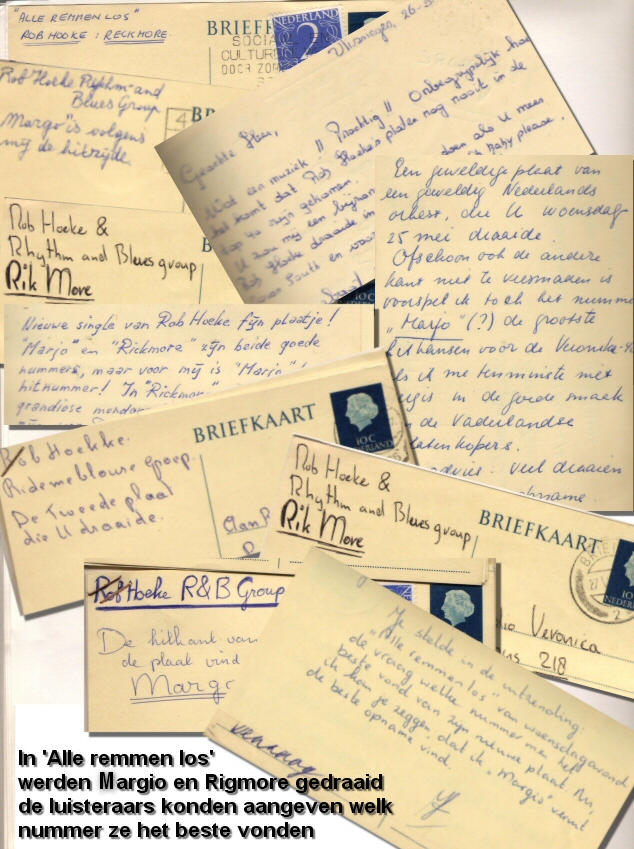 "ALLE REMMEN LOS"
ROB HOOKE : RECKMORE.
BRIEFKAART
NEDERLAND
2
SOCIA
CULTURE
DOOR ZOM
Rob Hoeke Rhythm and
Blues Group
"Margo" is volgens
mij de hitzijde.
4
Vlissingen, 26-5
Geachte Heer,
Wat een muziek!! Prachtig!! Onbegrijpelijk hoe
het komt dat Rob Hoeke's platen nog nooit in de
top 40 zijn gekomen.
doen als U meer
baby please,
U zou mij een
Rob Hoeke draaide in
South en
10 C
Rob Hoeke &
Rhythm and Blues group
Rik More
Een geweldige plaat van
een geweldig Nederlands
orkest, die U woensdag
25 mei draaide.
Ofschoon ook de andere
kant niet te versmaden is
voorspel ik toch het nummer
"Marjo" (?) de grootste
hitkansen voor de Veronica-40
als ik me tenminste niet
vergis in de goede smaak
van de Vaderlandse
platenkopers.
advies: veel draaien
Nieuwe single van Rob Hoeke. Fijn plaatje!
"Marjo" en "Rickmore" zijn beide goede
nummers, maar voor mij is "Marjo"
hitnummer! In "Rickmore"
grandiose
BRIEFKAART
10 C
NEDERLAND
Rob Hoekke.
Ridemeblouse Groep
De Tweede plaat
die U draaide.
Rob Hoeke &
Rhythm and Blues group
Rik More
BRIEFKAART
Rob Hoeke R&B Group
De hitkant van
de plaat vind
Margo
Veronica
218
Je stelde in de uitzending:
"Alle remmen los" van woensdagavond
de vraag welke nummer men het
beste vond van zijn nieuwe plaat. Nu,
ik kan je zeggen dat ik "Margio" veruit
de beste opname vind.
In 'Alle remmen los'
werden Margio en Rigmore gedraaid
de luisteraars konden aangeven welk
nummer ze het beste vonden